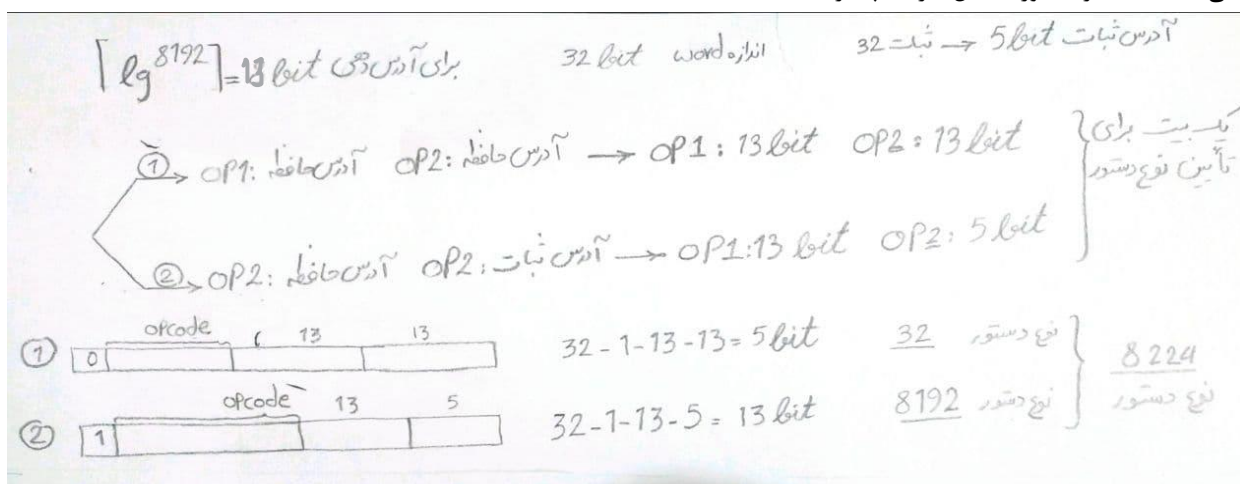 ⌈lg^8192⌉ = 13 bit برای آدرس دهی    32 bit word اندازه    32 ثبات → 5 bit آدرس ثبات
① → OP1: آدرس حافظه OP2: آدرس حافظه → OP1: 13 bit OP2: 13 bit
② → OP2: آدرس حافظه OP2: آدرس ثبات → OP1:13 bit OP2: 5 bit
یک بیت برای
تأیین نوع دستور
opcode 13 13
① 0    32-1-13-13 = 5 bit    32 نوع دستور
opcode 13 5
② 1    32-1-13-5 = 13 bit    8192 نوع دستور
8224
نوع دستور